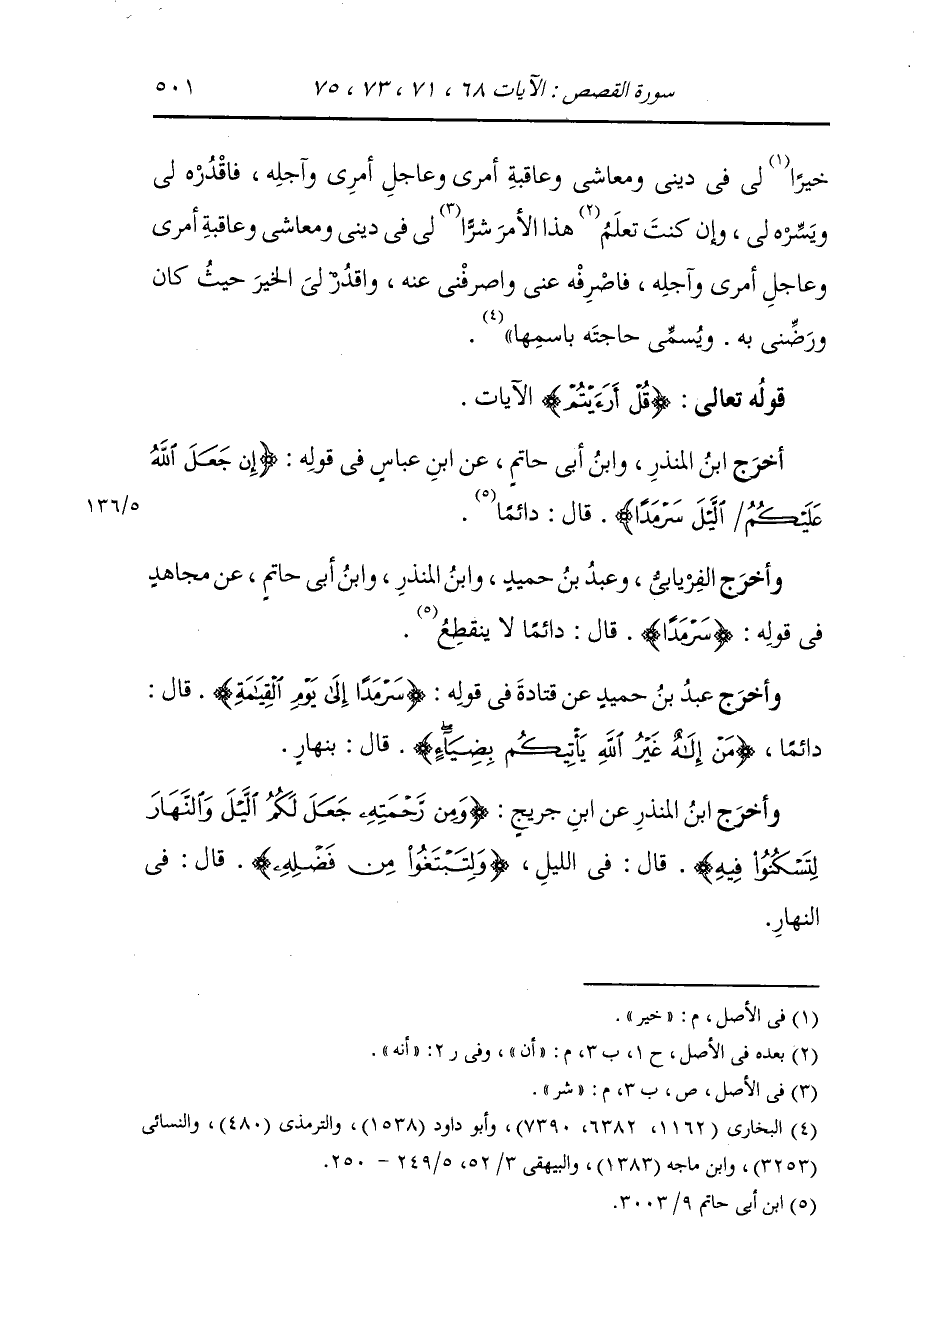 سورة القصص : الآيات ٦٨ ، ٧١ ، ٧٣ ، ٧٥ ٥٠١
خيرًا(١) لى فى دينى ومعاشى وعاقبةِ أمرى وعاجلِ أمرِى وآجلِه ، فاقْدُرْه لى
ويَسِّرْه لى ، وإن كنتَ تعلَمُ(٢) هذا الأمرَ شرًّا(٣) لى فى دينى ومعاشى وعاقبةِ أمرى
وعاجلِ أمرى وآجلِه ، فاصْرِفْه عنى واصرفْنى عنه ، واقدُرْ لىَ الخيرَ حيثُ كان
ورَضِّنى به . ويُسمِّى حاجتَه باسمِها»(٤) .
قولُه تعالى : ﴿قُلْ أَرَءَيْتُمْ﴾ الآيات .
أخرَج ابنُ المنذرِ ، وابنُ أبى حاتمٍ ، عن ابنِ عباسٍ فى قولِه : ﴿إِن جَعَلَ ٱللَّهُ
عَلَيْكُمُ/ ٱلَّيْلَ سَرْمَدًا﴾ . قال : دائمًا(٥) . ١٣٦/٥
وأخرَج الفِرْيابىُّ ، وعبدُ بنُ حميدٍ ، وابنُ المنذرِ ، وابنُ أبى حاتمٍ ، عن مجاهدٍ
فى قولِه : ﴿سَرْمَدًا﴾ . قال : دائمًا لا ينقطِعُ(٥) .
وأخرَج عبدُ بنُ حميدٍ عن قتادةَ فى قولِه : ﴿سَرْمَدًا إِلَىٰ يَوْمِ ٱلْقِيَٰمَةِ﴾ . قال :
دائمًا ، ﴿مَنْ إِلَٰهٌ غَيْرُ ٱللَّهِ يَأْتِيكُم بِضِيَآءٍۖ﴾ . قال : بنهارٍ .
وأخرَج ابنُ المنذرِ عن ابنِ جريجٍ : ﴿وَمِن رَّحْمَتِهِۦ جَعَلَ لَكُمُ ٱلَّيْلَ وَٱلنَّهَارَ
لِتَسْكُنُوا۟ فِيهِ﴾ . قال : فى الليلِ ، ﴿وَلِتَبْتَغُوا۟ مِن فَضْلِهِۦ﴾ . قال : فى
النهارِ.
(١) فى الأصل ، م : «خير» .
(٢) بعده فى الأصل ، ح ١، ب ٣، م : «أن» ، وفى ر ٢: «أنه» .
(٣) فى الأصل ، ص ، ب ٣، م : «شر» .
(٤) البخارى (١١٦٢، ٦٣٨٢، ٧٣٩٠)، وأبو داود (١٥٣٨)، والترمذى (٤٨٠)، والنسائى
(٣٢٥٣)، وابن ماجه (١٣٨٣)، والبيهقى ٣/ ٥٢، ٢٤٩/٥ - ٢٥٠.
(٥) ابن أبى حاتم ٩/ ٣٠٠٣.